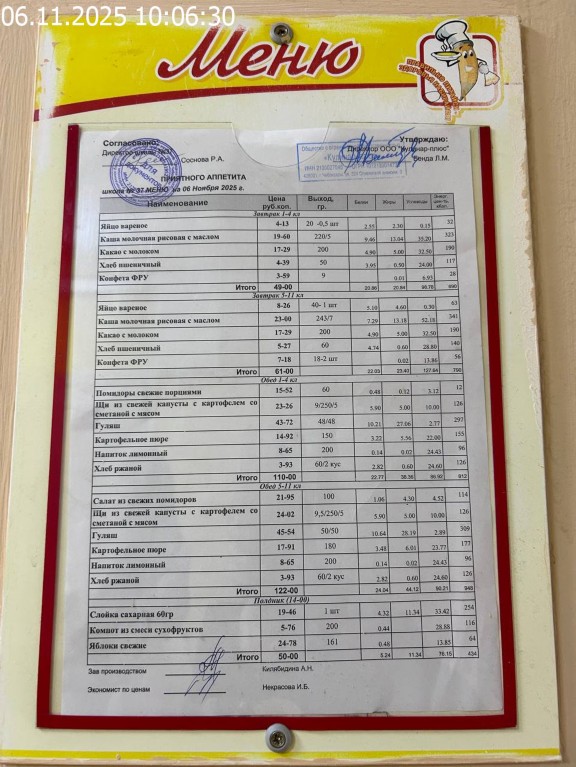 06.11.2025 10:06:30
Меню
Согласовано: Утверждаю:
Директор школы №37 Директор ООО "Кулинар-плюс"
Соснова Р.А. Бенда Л.М.
ПРИЯТНОГО АППЕТИТА
школа № 37 МЕНЮ на 06 Ноября 2025 г.
Наименование Цена руб.коп. Выход, гр. Белки Жиры Углеводы
Завтрак 1-4 кл
Яйцо вареное 4-13 20 -0,5 шт 2.55 2.30 0.15 32
Каша молочная рисовая с маслом 19-60 220/5 9.46 13.04 35.20 323
Какао с молоком 17-29 200 4.90 5.00 32.50 190
Хлеб пшеничный 4-39 50 3.95 0.50 24.00 117
Конфета ФРУ 3-59 9 0.01 6.93 28
Итого 49-00 20.86 20.84 98.78 690
Завтрак 5-11 кл
Яйцо вареное 8-26 40- 1 шт 5.18 4.60 0.30 63
Каша молочная рисовая с маслом 23-00 243/7 7.29 13.18 52.18 341
Какао с молоком 17-29 200 4.90 5.00 32.50 190
Хлеб пшеничный 5-27 60 4.74 0.60 28.80 140
Конфета ФРУ 7-18 18-2 шт 0.02 13.86 56
Итого 61-00 22.03 23.40 127.64 790
Обед 1-4 кл
Помидоры свежие порциями 15-52 60 0.48 0.12 3.12 12
Щи из свежей капусты с картофелем со
сметаной с мясом 23-26 9/250/5 5.90 5.00 10.00 126
Гуляш 43-72 48/48 10.21 27.06 2.77 297
Картофельное пюре 14-92 150 3.22 5.56 22.00 155
Напиток лимонный 8-65 200 0.14 0.02 24.43 96
Хлеб ржаной 3-93 60/2 кус 2.82 0.60 24.60 126
Итого 110-00 22.77 38.36 86.92 812
Обед 5-11 кл
Салат из свежих помидоров 21-95 100 1.06 4.30 4.52 114
Щи из свежей капусты с картофелем со
сметаной с мясом 24-02 9,5/250/5 5.90 5.00 10.00 126
Гуляш 45-54 50/50 10.64 28.19 2.89 309
Картофельное пюре 17-91 180 3.48 6.01 23.77 177
Напиток лимонный 8-65 200 0.14 0.02 24.43 96
Хлеб ржаной 3-93 60/2 кус 2.82 0.60 24.60 126
Итого 122-00 24.04 44.12 90.21 948
Полдник (14-00)
Слойка сахарная 60гр 19-46 1 шт 4.32 11.34 33.42 254
Компот из смеси сухофруктов 5-76 200 0.44 28.88 116
Яблоки свежие 24-78 161 0.48 13.85 64
Итого 50-00 5.24 11.34 76.15 434
Зав производством Килябидина А.Н.
Экономист по ценам Некрасова И.Б.